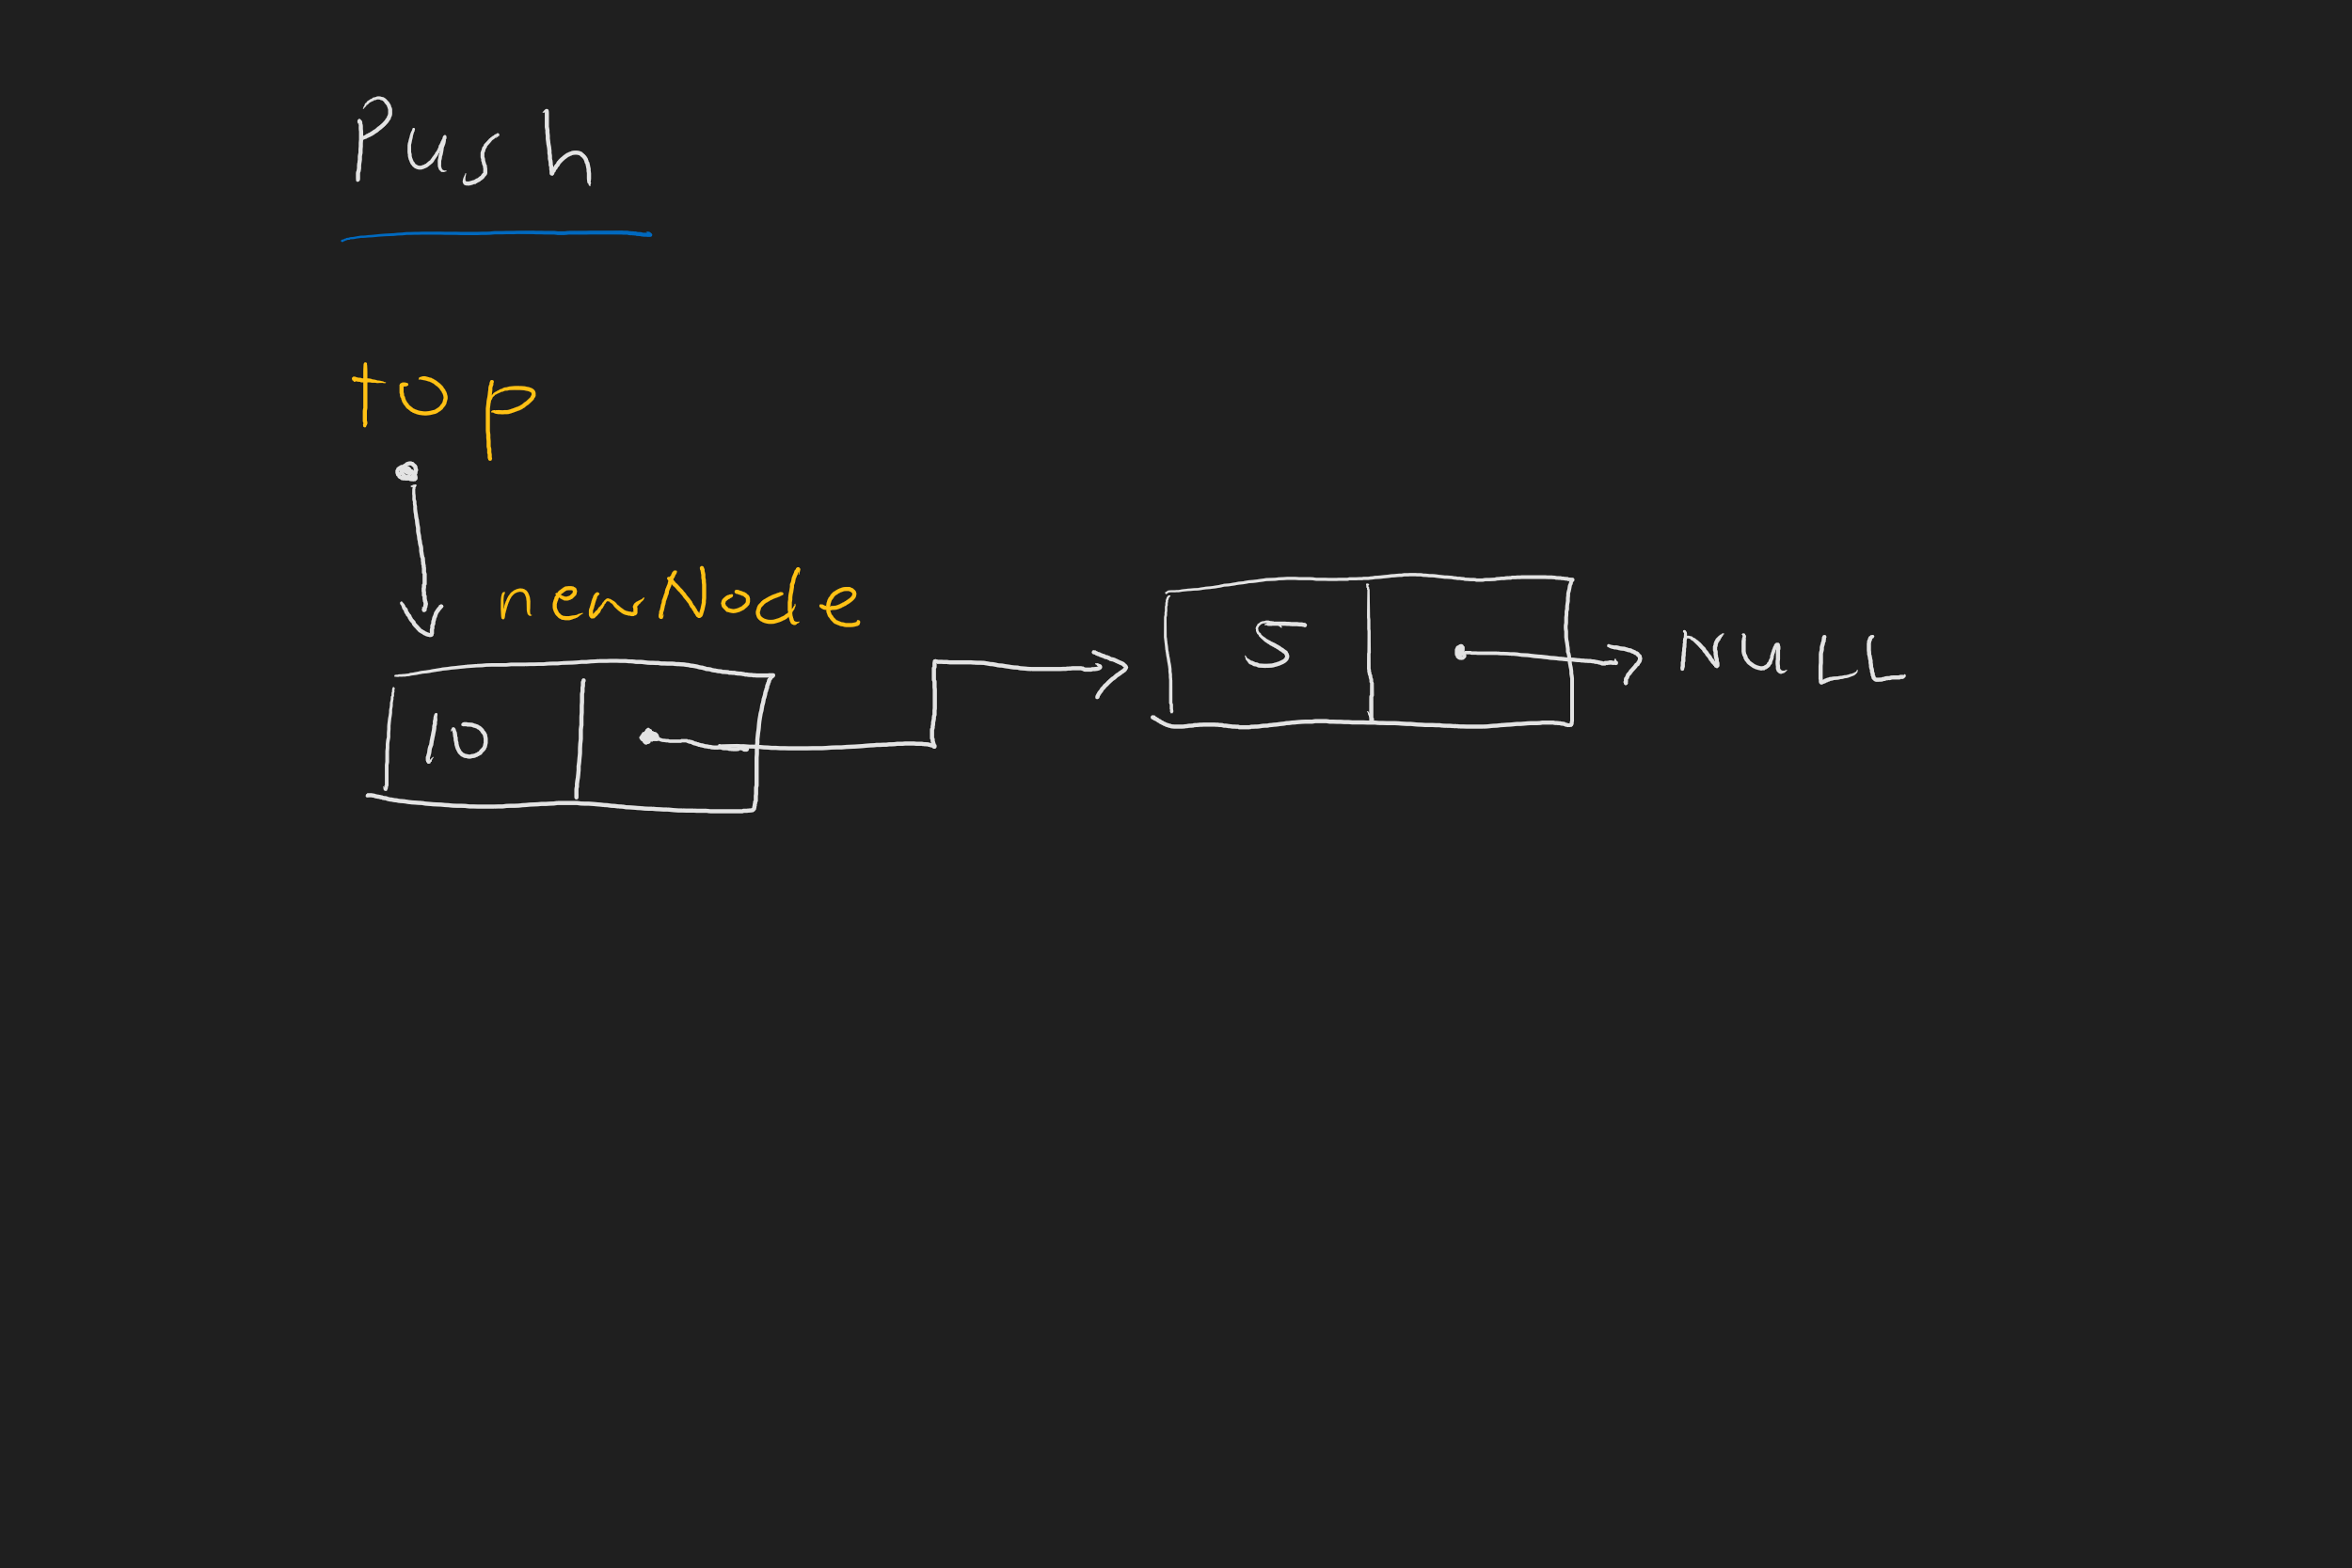 Push
top
newNode
10
5
NULL